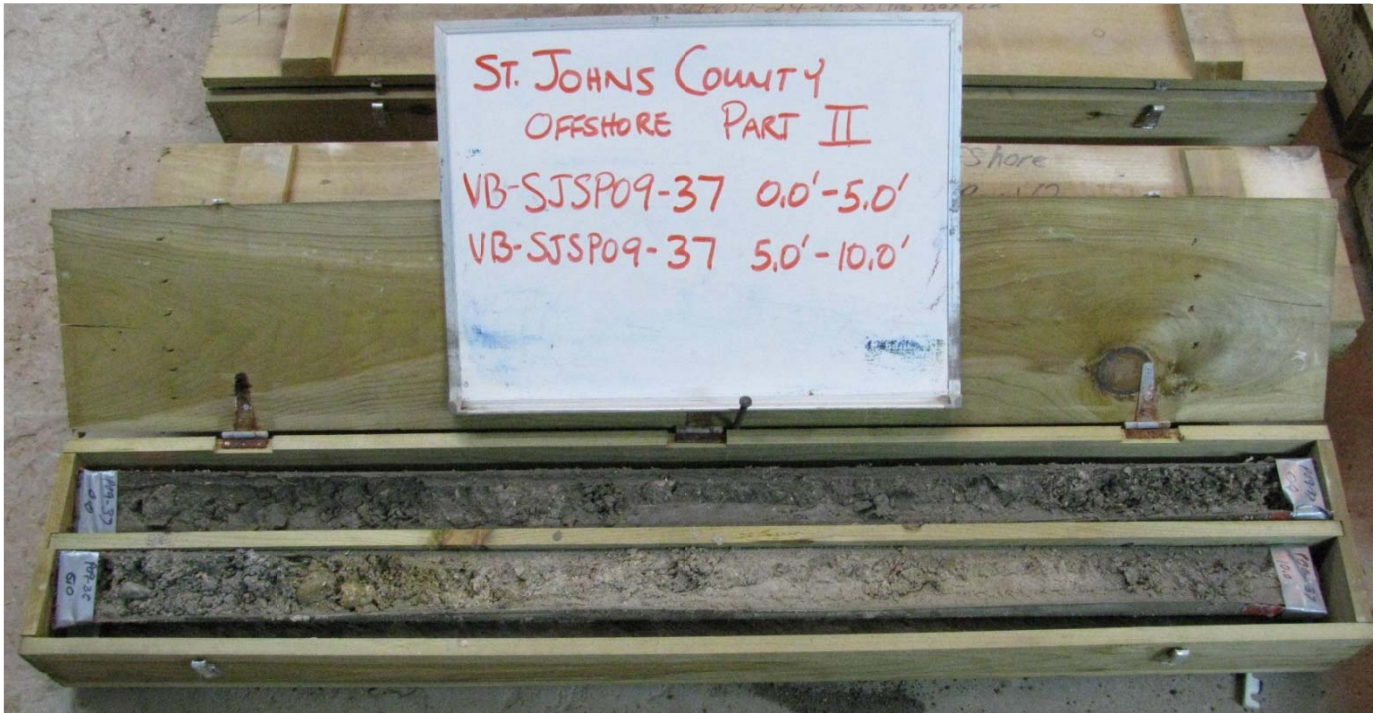 ST. JOHNS COUNTY
OFFSHORE PART II
VB-SJSP09-37 0.0'-5.0'
VB-SJSP09-37 5.0'-10.0'
shore